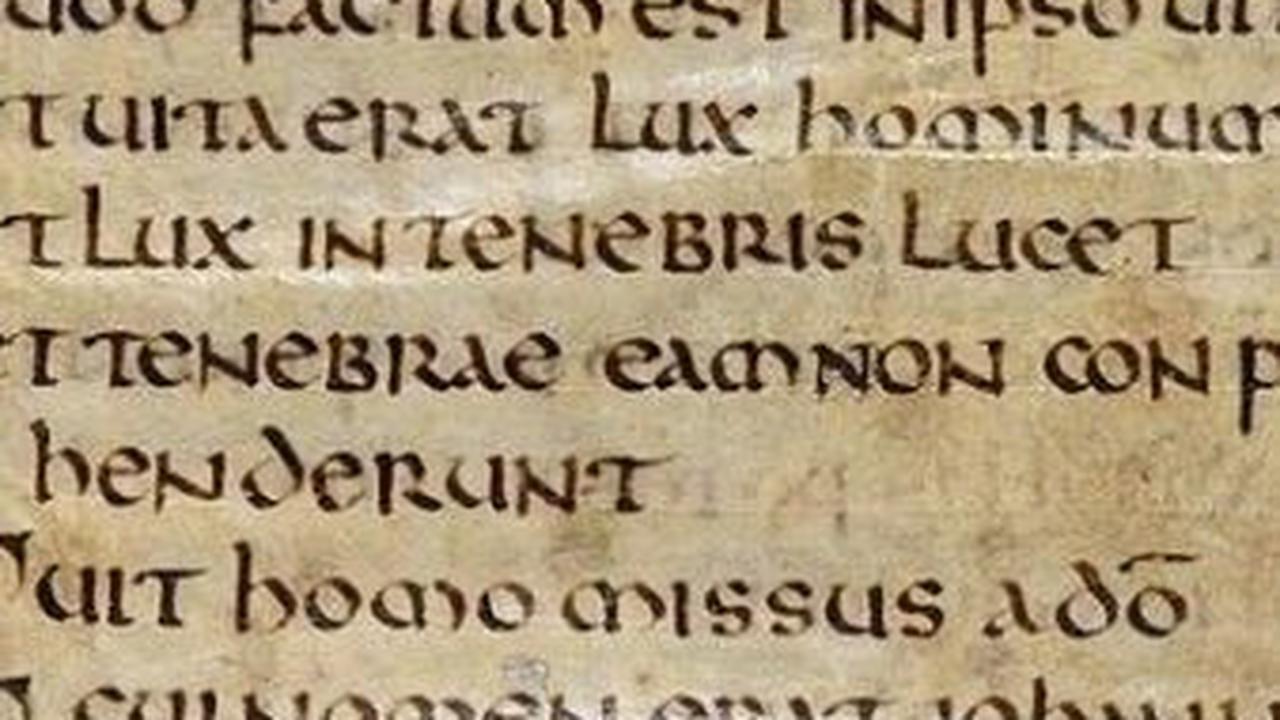 quod factum est in ipso ui
t uita erat lux hominum
t lux in tenebris lucet
et tenebrae eam non con p
henderunt
fuit homo missus a dō
cui nomen erat iohann